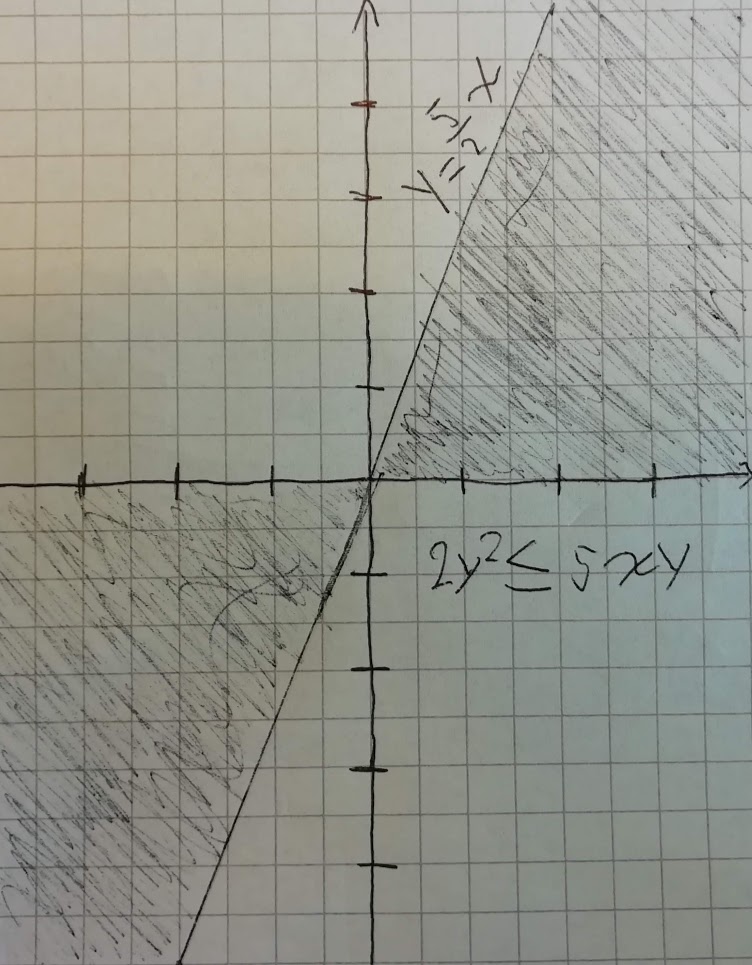 y = 5/2 x
2y² ≤ 5xy